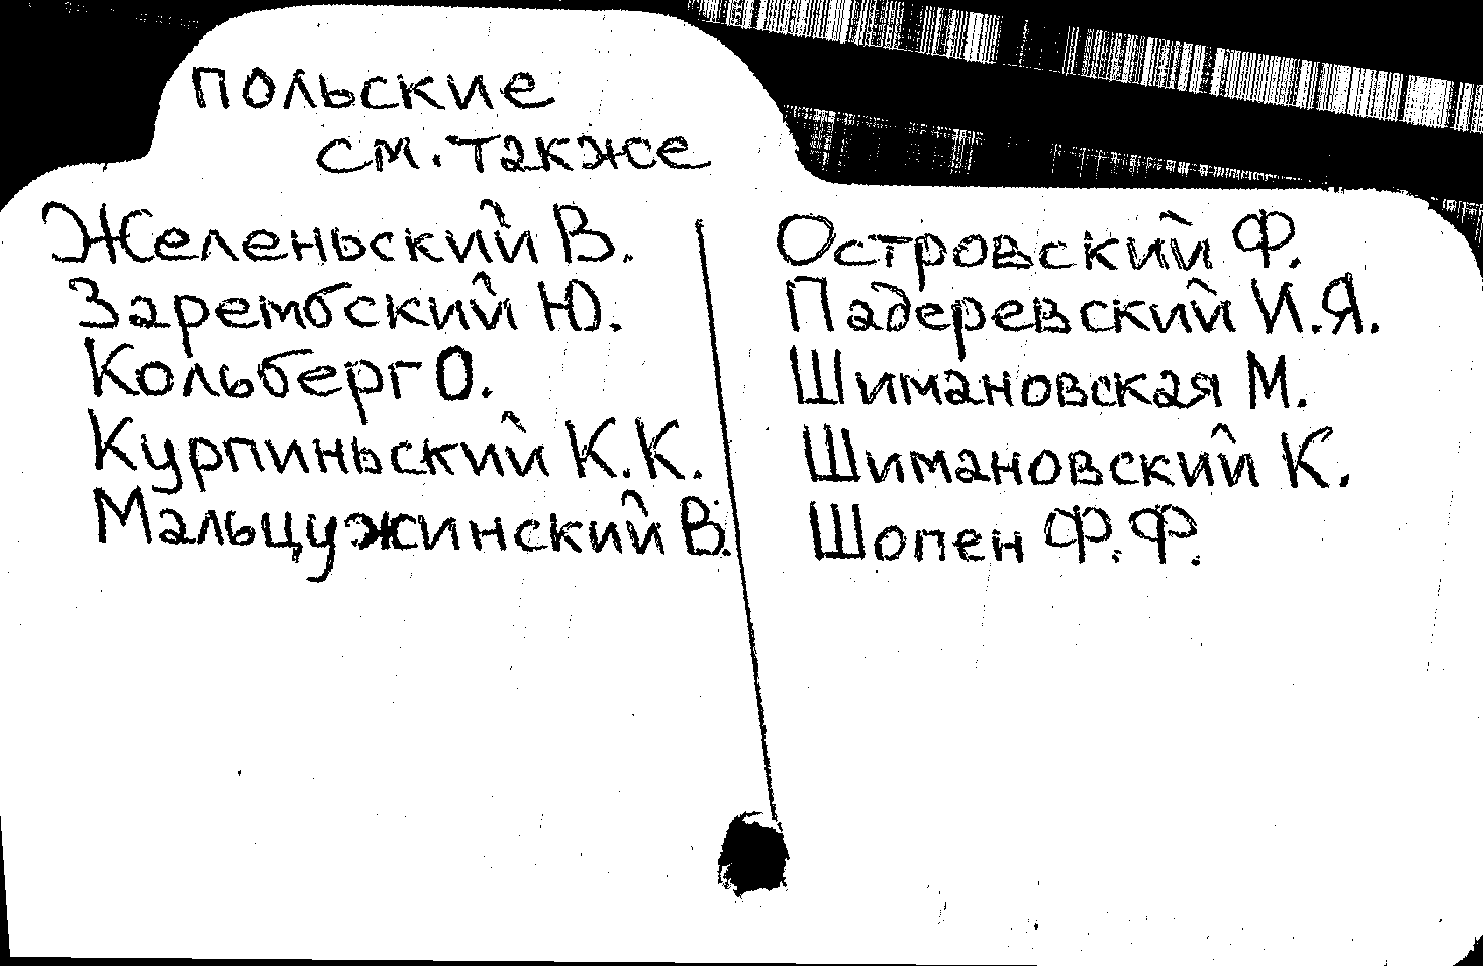 польские
см. также
Желеньский В.
Зарембский Ю.
Кольберг О.
Курпиньский К.К.
Мальцужинский В.
Островский Ф.
Падеревский И.Я.
Шимановская М.
Шимановский К.
Шопен Ф.Ф.